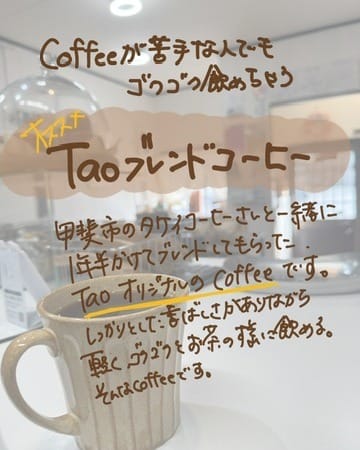 Coffeeが苦手な人でも
ゴクゴク飲めちゃう
オススメ
Taoブレンドコーヒー
甲斐市のタケイコーヒーさんと一緒に
1年半かけてブレンドしてもらった
Tao オリジナルの Coffee です。
しっかりとした香ばしさがありながら
軽くゴクゴクとお茶の様に飲める。
そんなcoffeeです。